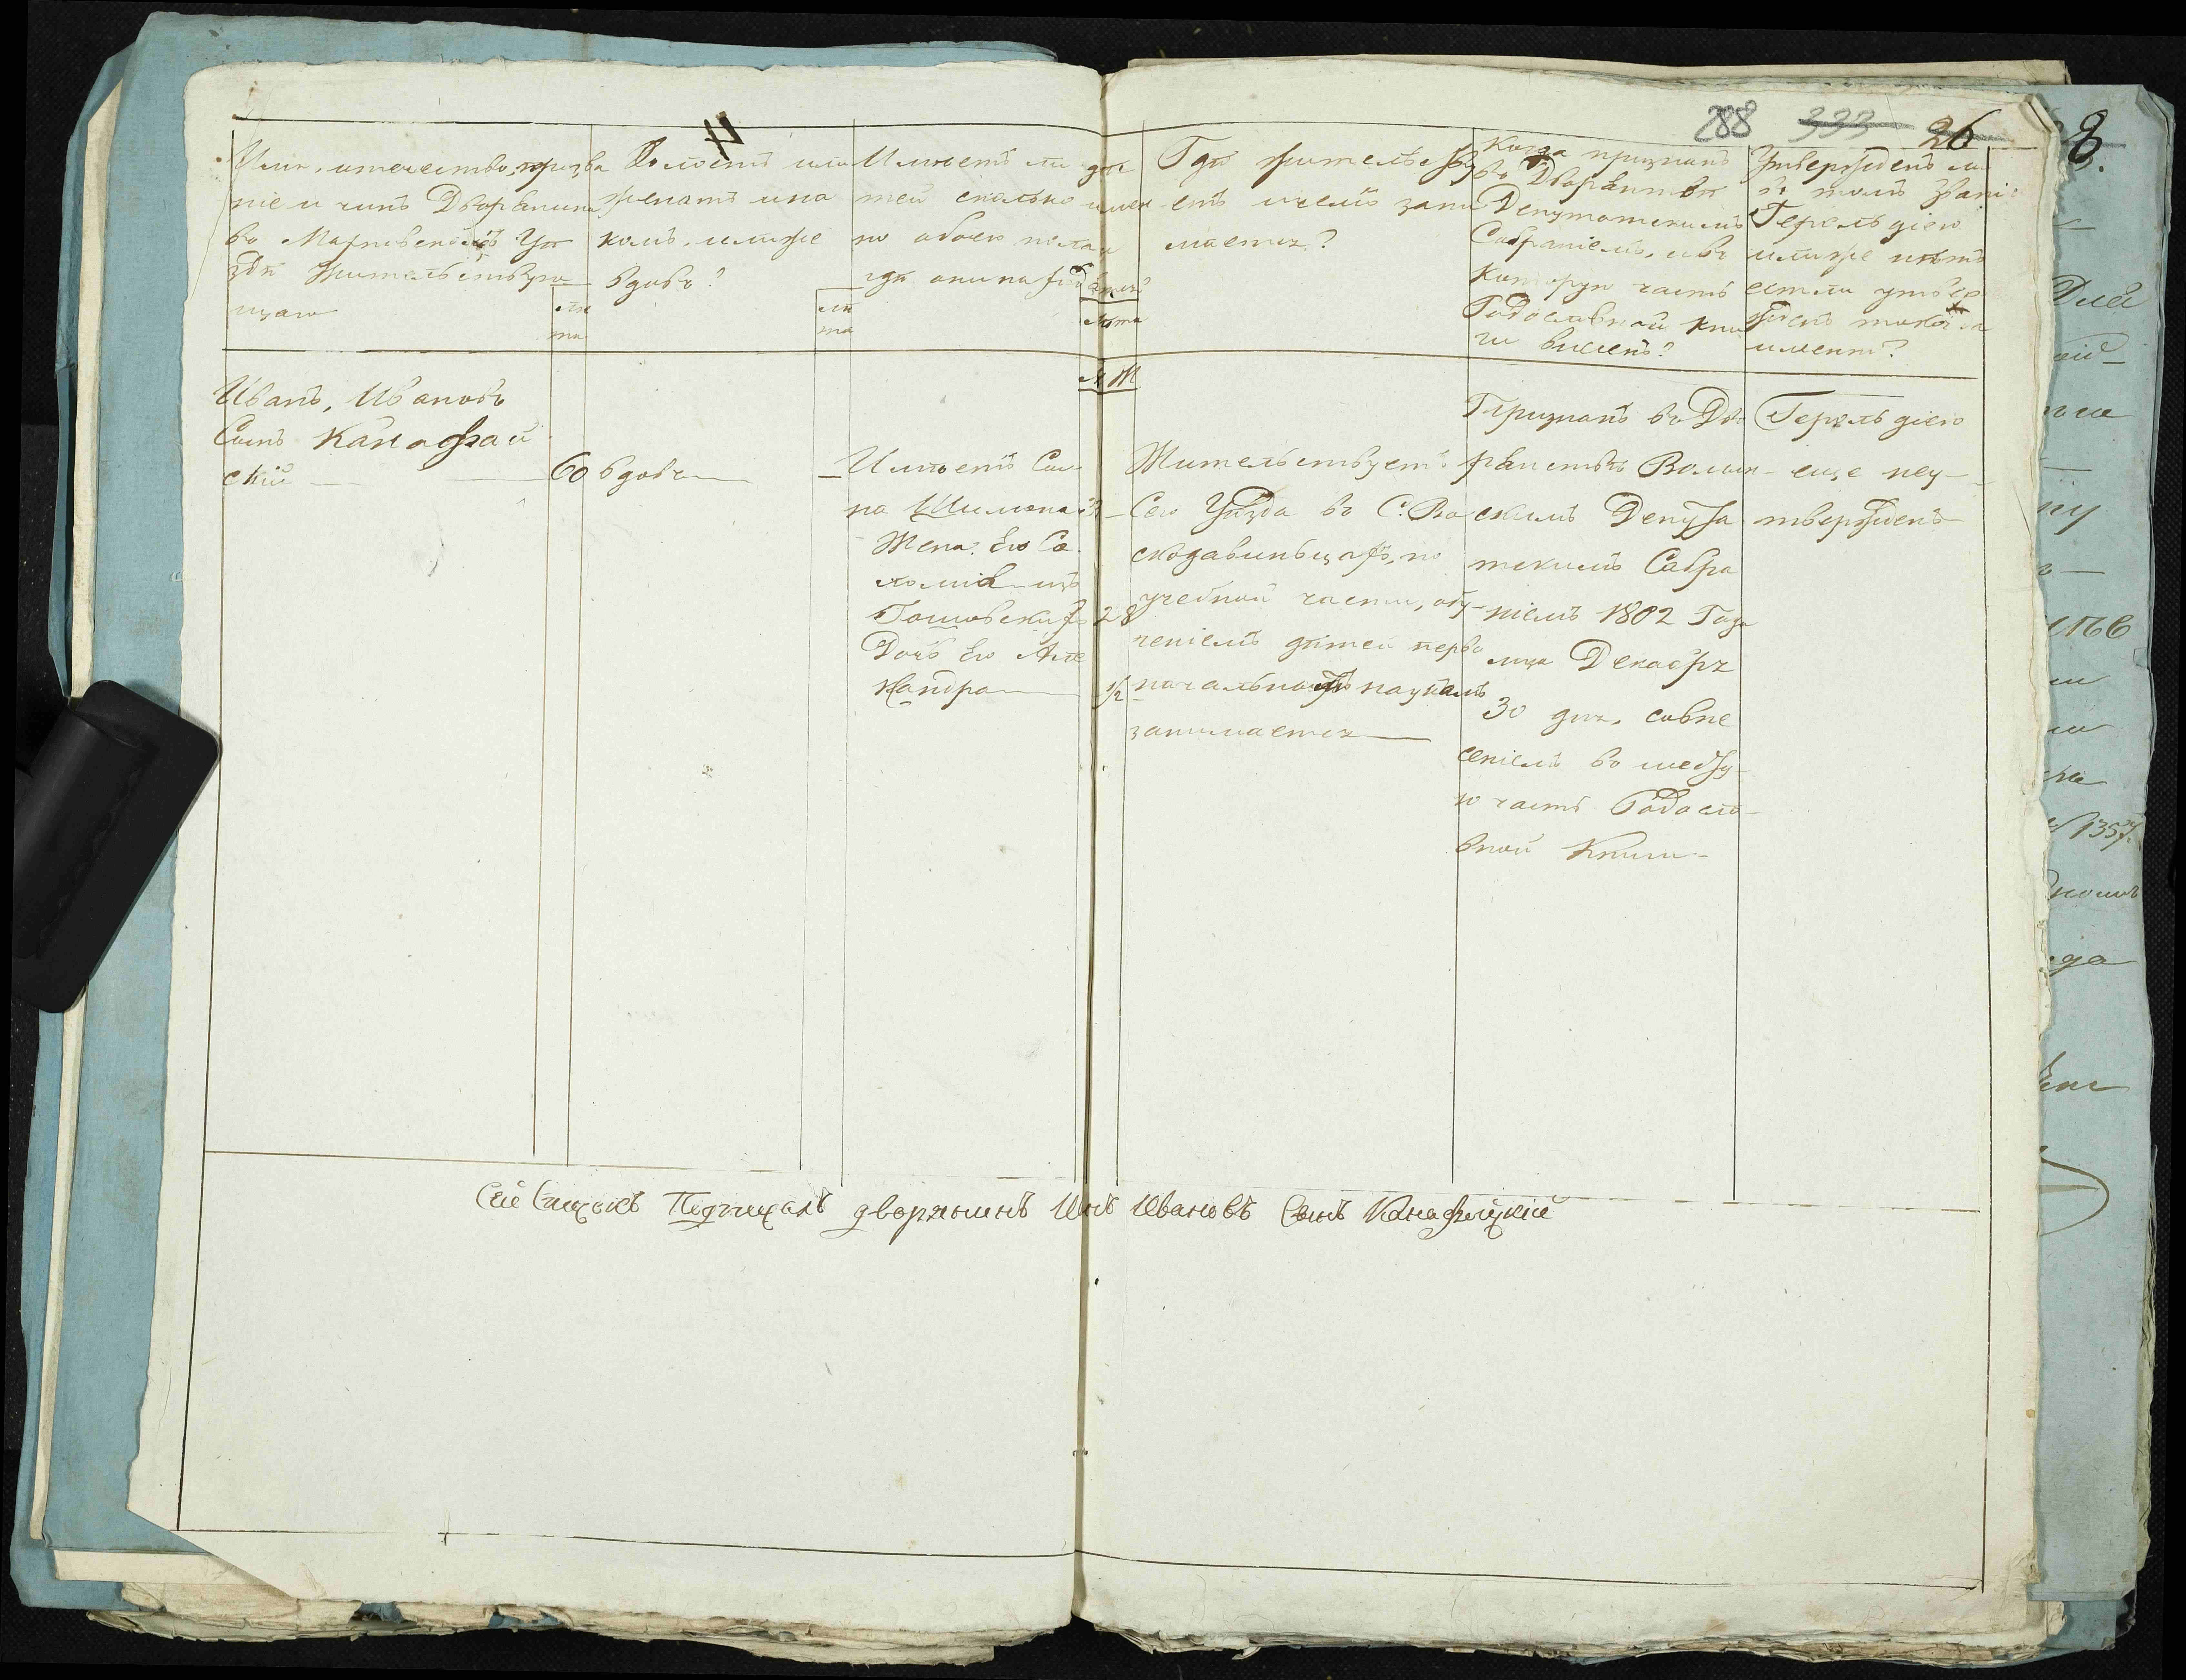 4
288 333 26
8.
Имя, отечество, прозва
ніе и чинъ Дворянина
въ Махновскомъ Уѣ
здѣ Жительствую
щаго
лѣ
та
Холостъ или
женатъ и на
комъ, или же
вдовъ?
лѣ
та
Имѣетъ ли дѣ
тей сколько имен
но обоего пола и
гдѣ они находятся?
лѣта
М Ж
Гдѣ жительству
етъ и чемъ зани
мается?
Когда признанъ
въ Дворянствѣ
Депутатскимъ
Собраніемъ, и въ
которую часть
Родословной кни
ги внесенъ?
Утвержденъ ли
въ томъ званіи
Герольдіею
или же нѣтъ
естли утвер
жденъ то когда
имѣнно?
Иванъ, Ивановъ
Сынъ
скій
60
вдовъ
Имѣетъ Сы
на Шимона 32
Жена Его Са
ломія изъ
28
Дочь Его Але
ксандра 1/2
Жительствуетъ
Сего Уѣзда въ С.
по
учебной части, обу
ченіемъ дѣтей перво
начальнымъ наукамъ
занимается
Признанъ въ Дво
рянствѣ Волын
скимъ Депута
тскимъ Собра
ніемъ 1802 Года
мца Декабря
30 дня, совне
сеніемъ въ шесту
ю часть Родосло
вной Книги
Герольдіею
еще неу
твержденъ
Сей Списокъ Подписалъ дворянинъ Ивановъ Сынъ
1357.